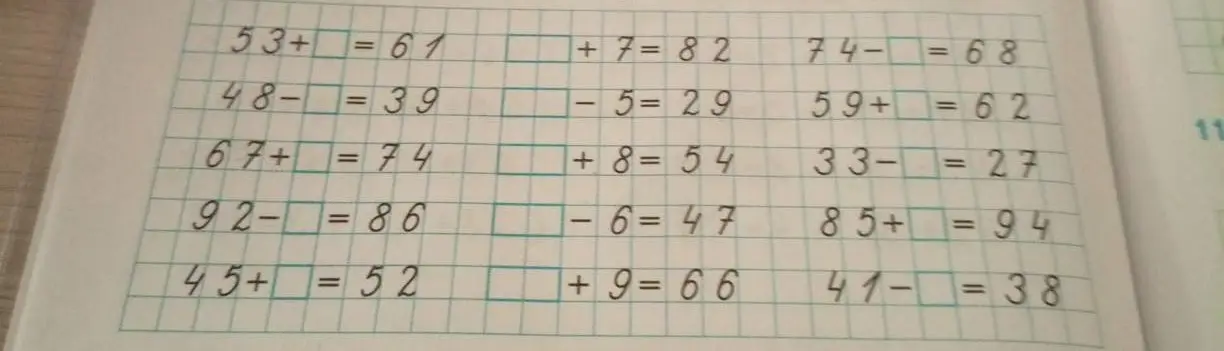 53+□=61 □+7=82 74-□=68
48-□=39 □-5=29 59+□=62
67+□=74 □+8=54 33-□=27
92-□=86 □-6=47 85+□=94
45+□=52 □+9=66 41-□=38
11